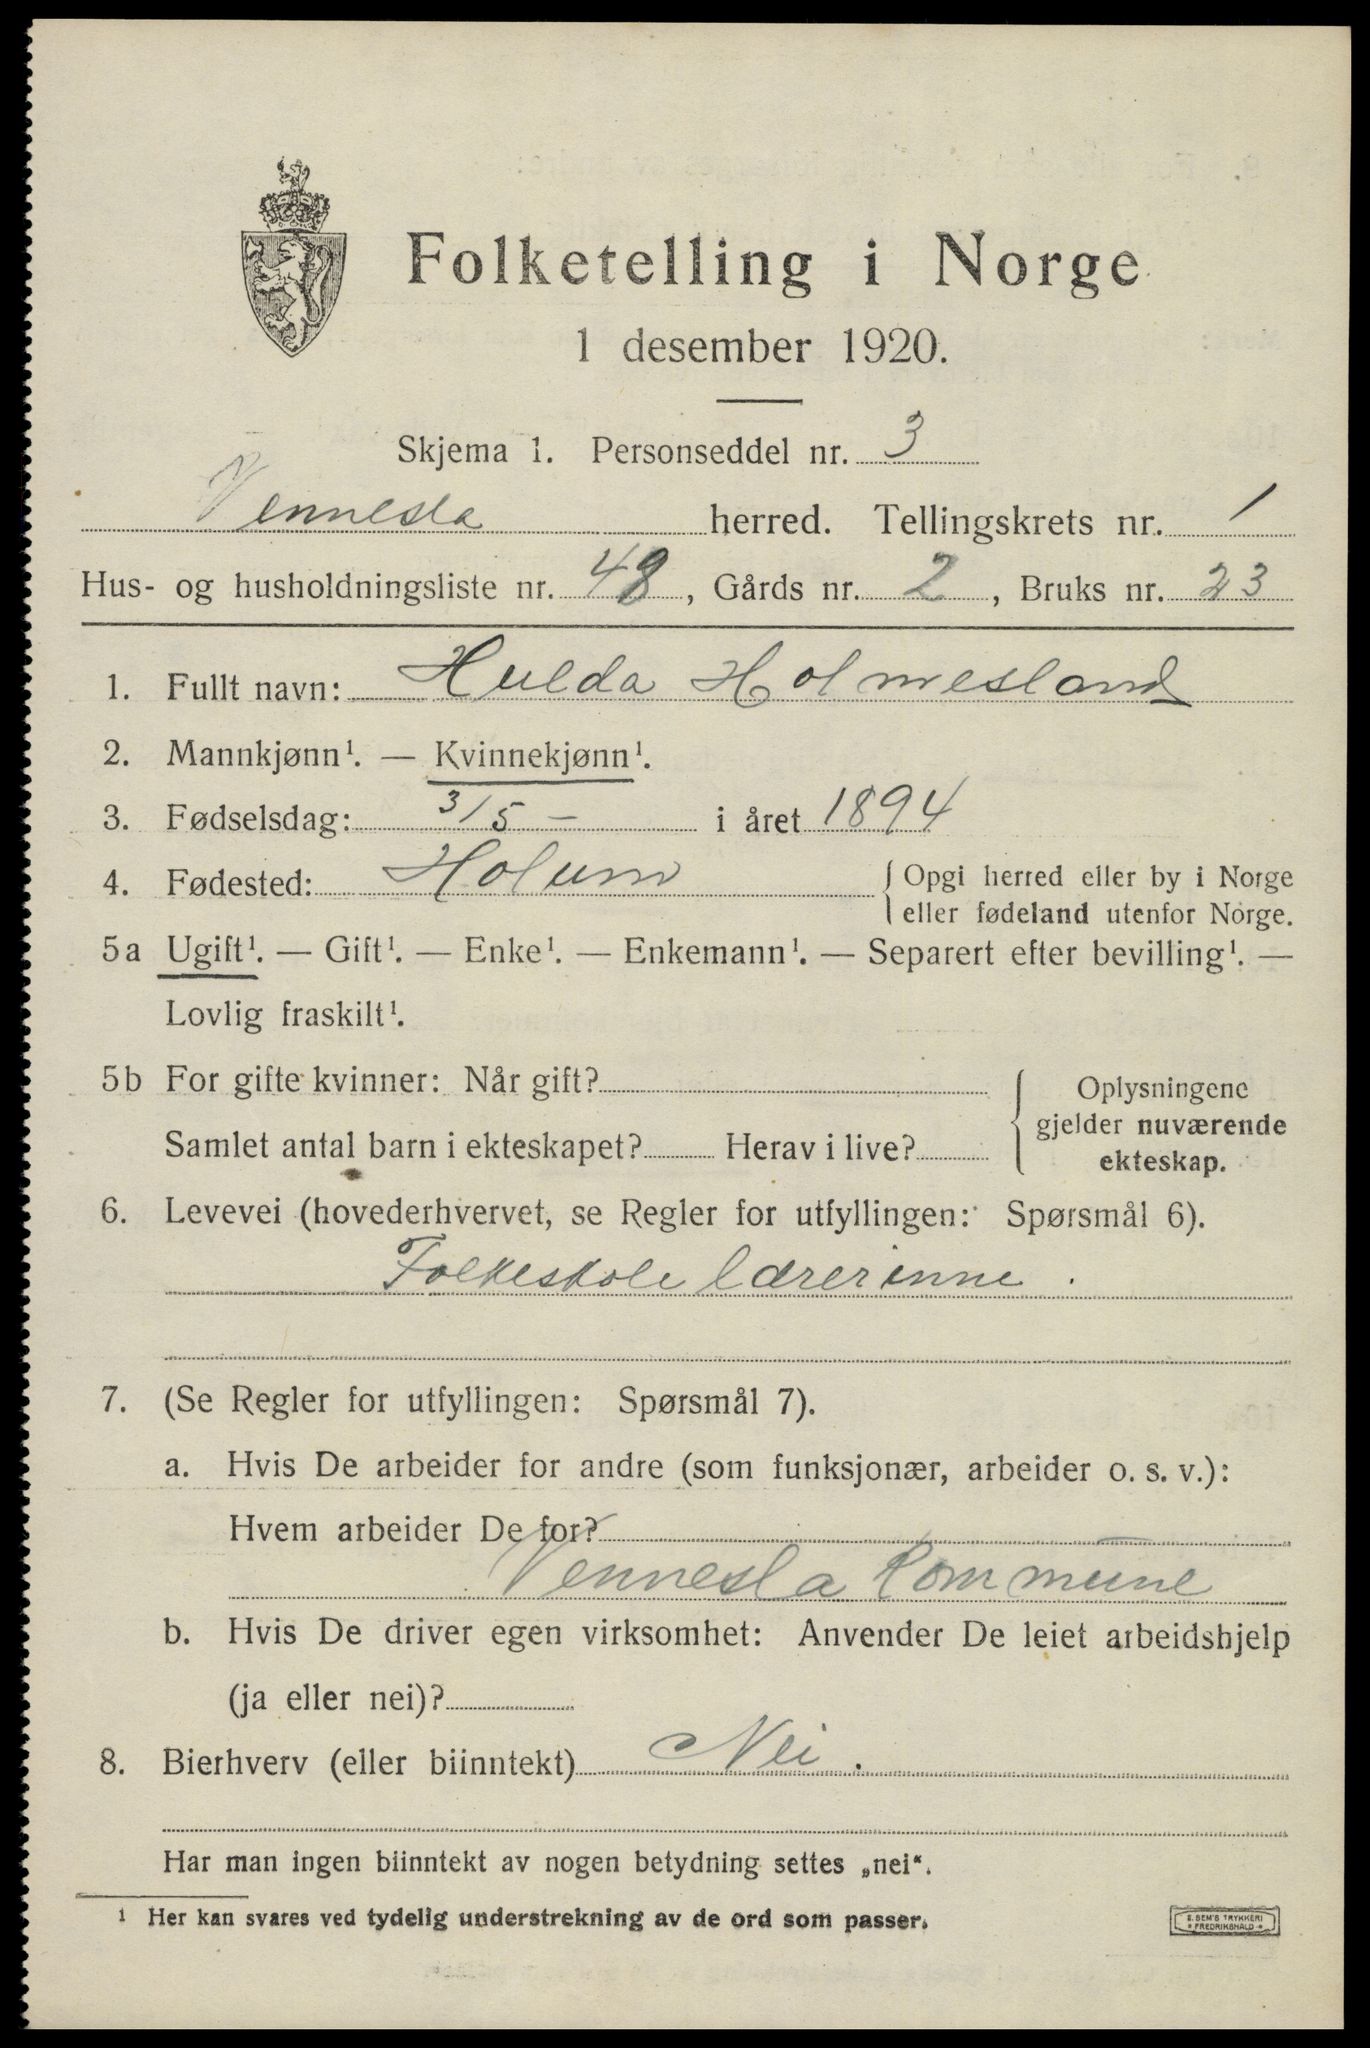 Folketelling i Norge
1 desember 1920.
Skjema 1. Personseddel nr. 3
Vennesla herred. Tellingskrets nr. 1
Hus- og husholdningsliste nr. 48, Gårds nr. 2, Bruks nr. 23
1. Fullt navn: Hulda Holmesland
2. Mannkjønn¹. — Kvinnekjønn¹.
3. Fødselsdag: 3/5 - i året 1894
4. Fødested: Holum { Opgi herred eller by i Norge
eller fødeland utenfor Norge.
5a Ugift¹. — Gift¹. — Enke¹. — Enkemann¹. — Separert efter bevilling¹. —
Lovlig fraskilt¹.
5b For gifte kvinner: Når gift?
Samlet antal barn i ekteskapet? Herav i live?
Oplysningene
gjelder nuværende
ekteskap.
6. Levevei (hovederhvervet, se Regler for utfyllingen: Spørsmål 6).
Folkeskolelærerinne.
7. (Se Regler for utfyllingen: Spørsmål 7).
a. Hvis De arbeider for andre (som funksjonær, arbeider o. s. v.):
Hvem arbeider De for?
Vennesla Kommune
b. Hvis De driver egen virksomhet: Anvender De leiet arbeidshjelp
(ja eller nei)?
8. Bierhverv (eller biinntekt) Nei.
Har man ingen biinntekt av nogen betydning settes „nei“.
¹ Her kan svares ved tydelig understrekning av de ord som passer.
E. SEM'S TRYKKERI
FREDRIKSHALD